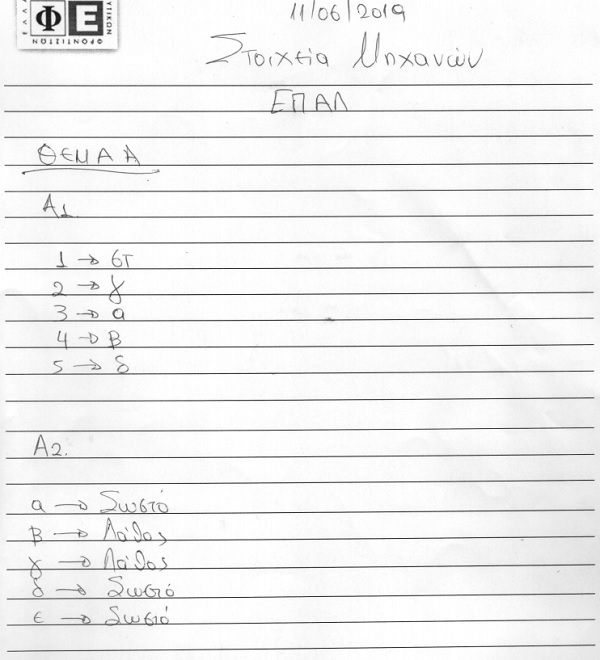 ΦΕ
11/06/2019
Στοιχεία Μηχανών
ΕΠΑΛ
ΘΕΜΑ Α
Α1
1 → στ
2 → γ
3 → α
4 → β
5 → δ
Α2.
α → Σωστό
β → Λάθος
γ → Λάθος
δ → Σωστό
ε → Σωστό